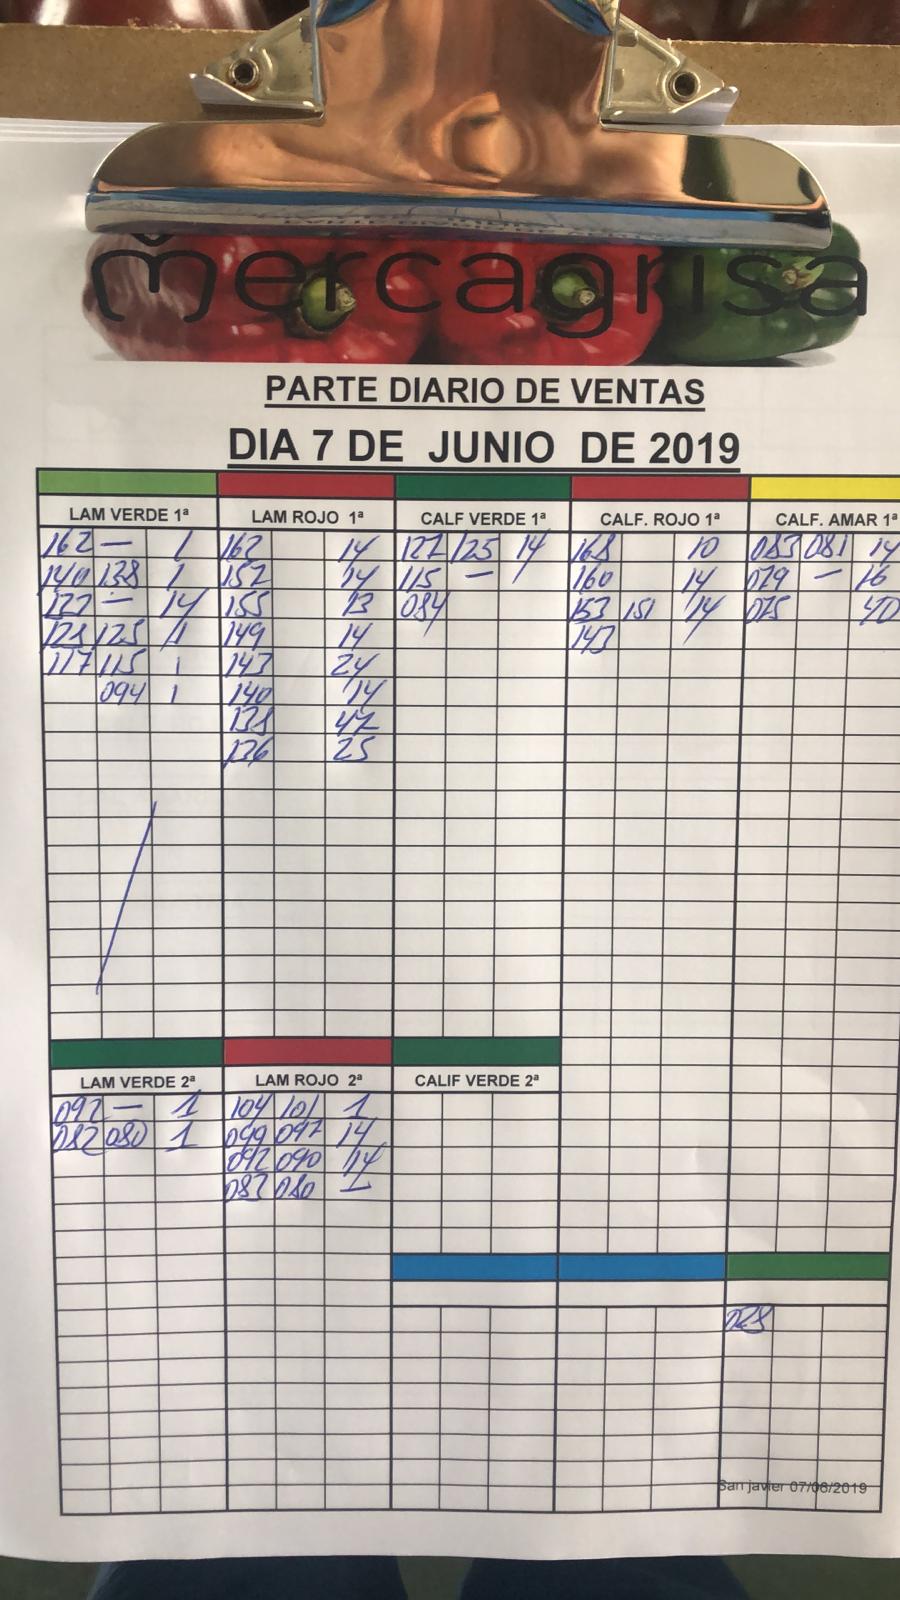 mercagrisa
PARTE DIARIO DE VENTAS
DIA 7 DE JUNIO DE 2019
LAM VERDE 1ª LAM ROJO 1ª CALF VERDE 1ª CALF. ROJO 1ª CALF. AMAR 1ª
162 — 1 162 14 127 125 14 168 10 083 081 14
140 138 1 157 14 115 — 160 14 079 — 16
127 — 14 155 13 084 153 151 14 075 40
128 125 1 149 14 143
117 115 1 143 24
094 1 140 14
138 47
136 25
LAM VERDE 2ª LAM ROJO 2ª CALIF VERDE 2ª
092 — 1 104 101 1
082 080 1 099 097 14
092 090 14
083 080 1
San javier 07/06/2019